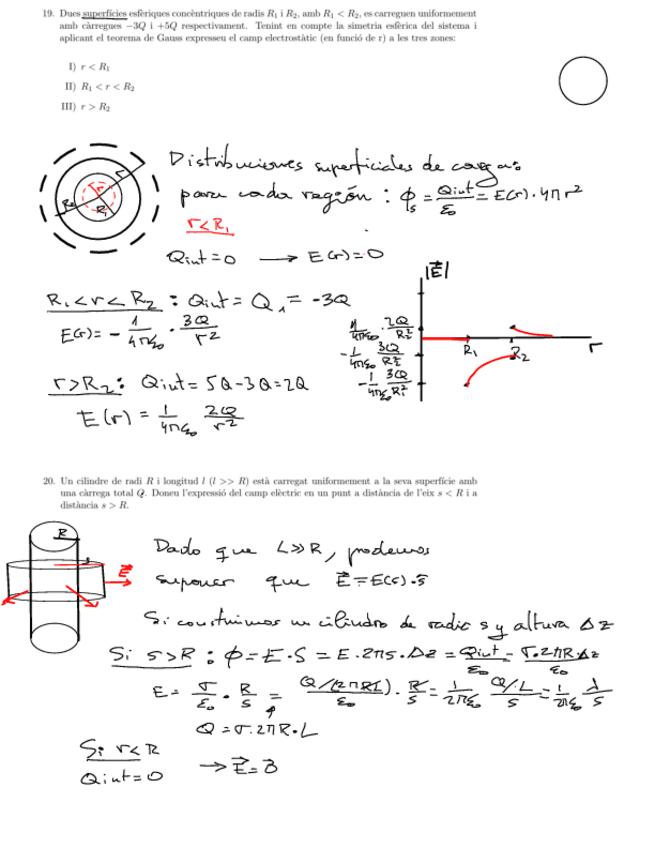 19. Dues superfícies esfèriques concèntriques de radis R₁ i R₂, amb R₁ < R₂, es carreguen uniformement
amb càrregues −3Q i +5Q respectivament. Tenint en compte la simetria esfèrica del sistema i
aplicant el teorema de Gauss expresseu el camp electrostàtic (en funció de r) a les tres zones:
I) r < R₁
II) R₁ < r < R₂
III) r > R₂
Distribuciones superficiales de carga:
para cada región : ϕₛ = Qint/ε₀ = E(r)·4πr²
r<R₁
Qint=0 → E(r)=0
R₁<r<R₂ : Qint = Q₁ = -3Q
E(r)= - 1/4πε₀ · 3Q/r²
r>R₂: Qint= 5Q-3Q=2Q
E(r) = 1/4πε₀ 2Q/r²
r
R₂
R₁
|E⃗|
1/4πε₀ · 2Q/R₂²
-1/4πε₀ 3Q/R₂²
-1/4πε₀ 3Q/R₁²
R₁
R₂
r
20. Un cilindre de radi R i longitud l (l >> R) està carregat uniformement a la seva superfície amb
una càrrega total Q. Doneu l'expressió del camp elèctric en un punt a distància de l'eix s < R i a
distància s > R.
R
E⃗
Dado que L≫R, podemos
suponer que E⃗ = E(s)·ŝ
Si construimos un cilindro de radio s y altura Δz
Si s>R : ϕ = E·S = E·2πs·Δz = Qint/ε₀ = σ·2πRΔz/ε₀
E = σ/ε₀ · R/s = Q/(2πRL)/ε₀ · R/s = 1/2πε₀ Q/L/s = 1/2πε₀ λ/s
Q = σ·2πR·L
Si r<R
Qint=0 → E⃗=0⃗